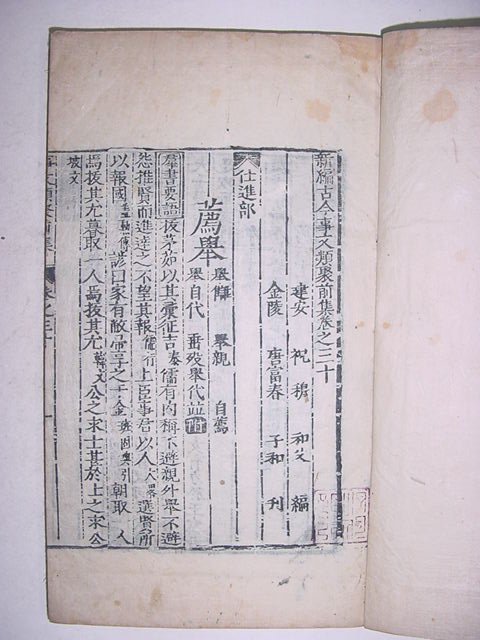 新編古今事文類聚前集卷之三十
建安 祝穆 和父 編
金陵 唐富春 子和 刊
仕進部
薦舉 舉親 自薦
舉自代 垂歿舉代並附
羣書要語 拔茅茹以其彙征吉泰儒有內稱不避親外舉不避
怨推賢而進達之不望其報儒行上臣事君以人大畧選賢所
以報國 諺曰家有敝帚享之千金 朝取一人
焉拔其尤暮取一人焉拔其尤韓文公之求士其於上之求公
坡文